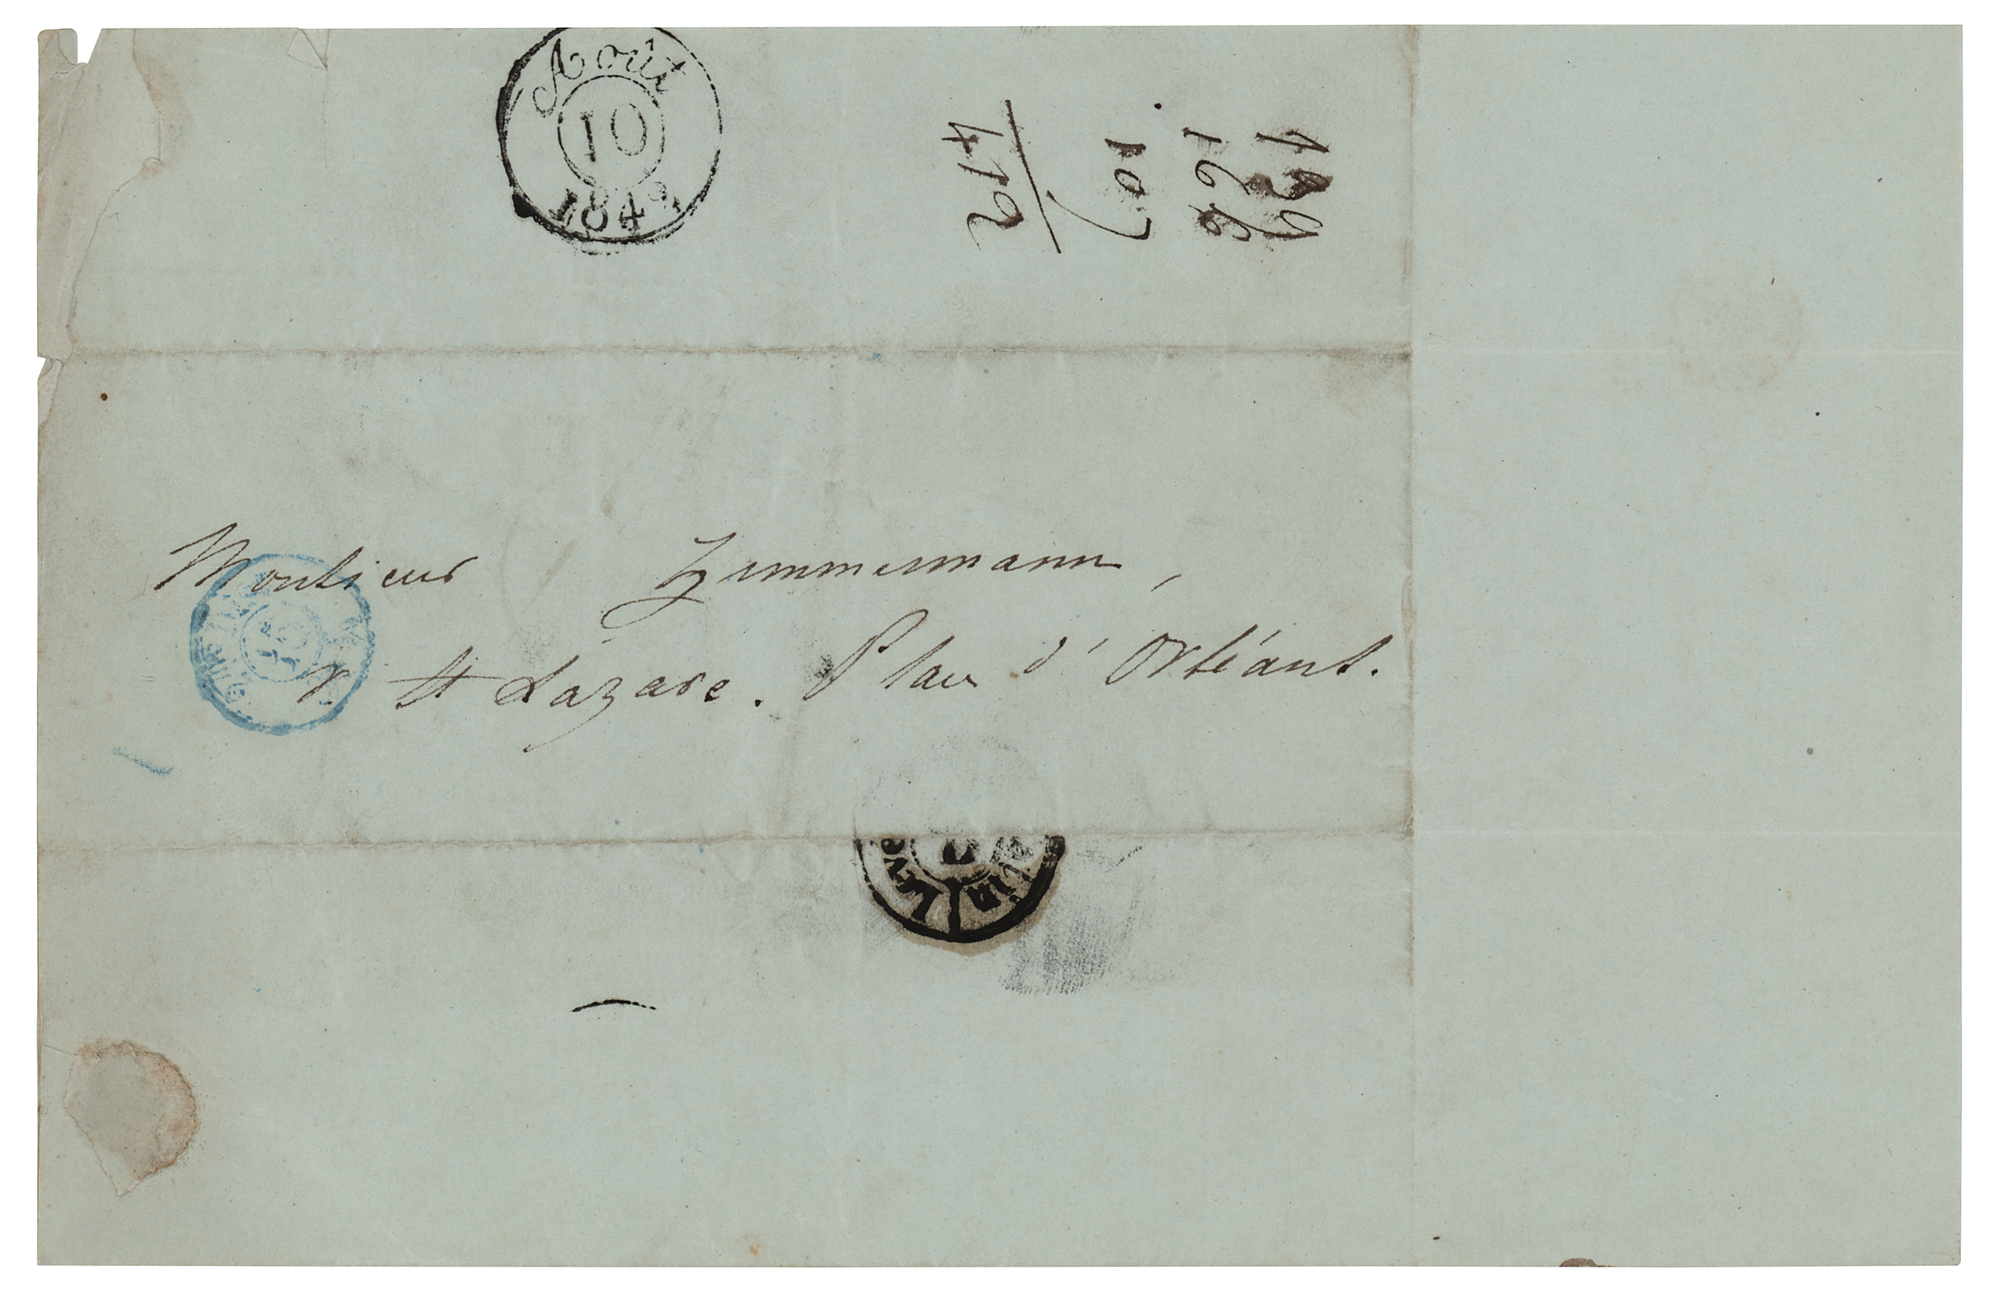 Août
10
1842
139
166
107
412
Monsieur Zimmermann,
r. St Lazare. Place d'Orléans.